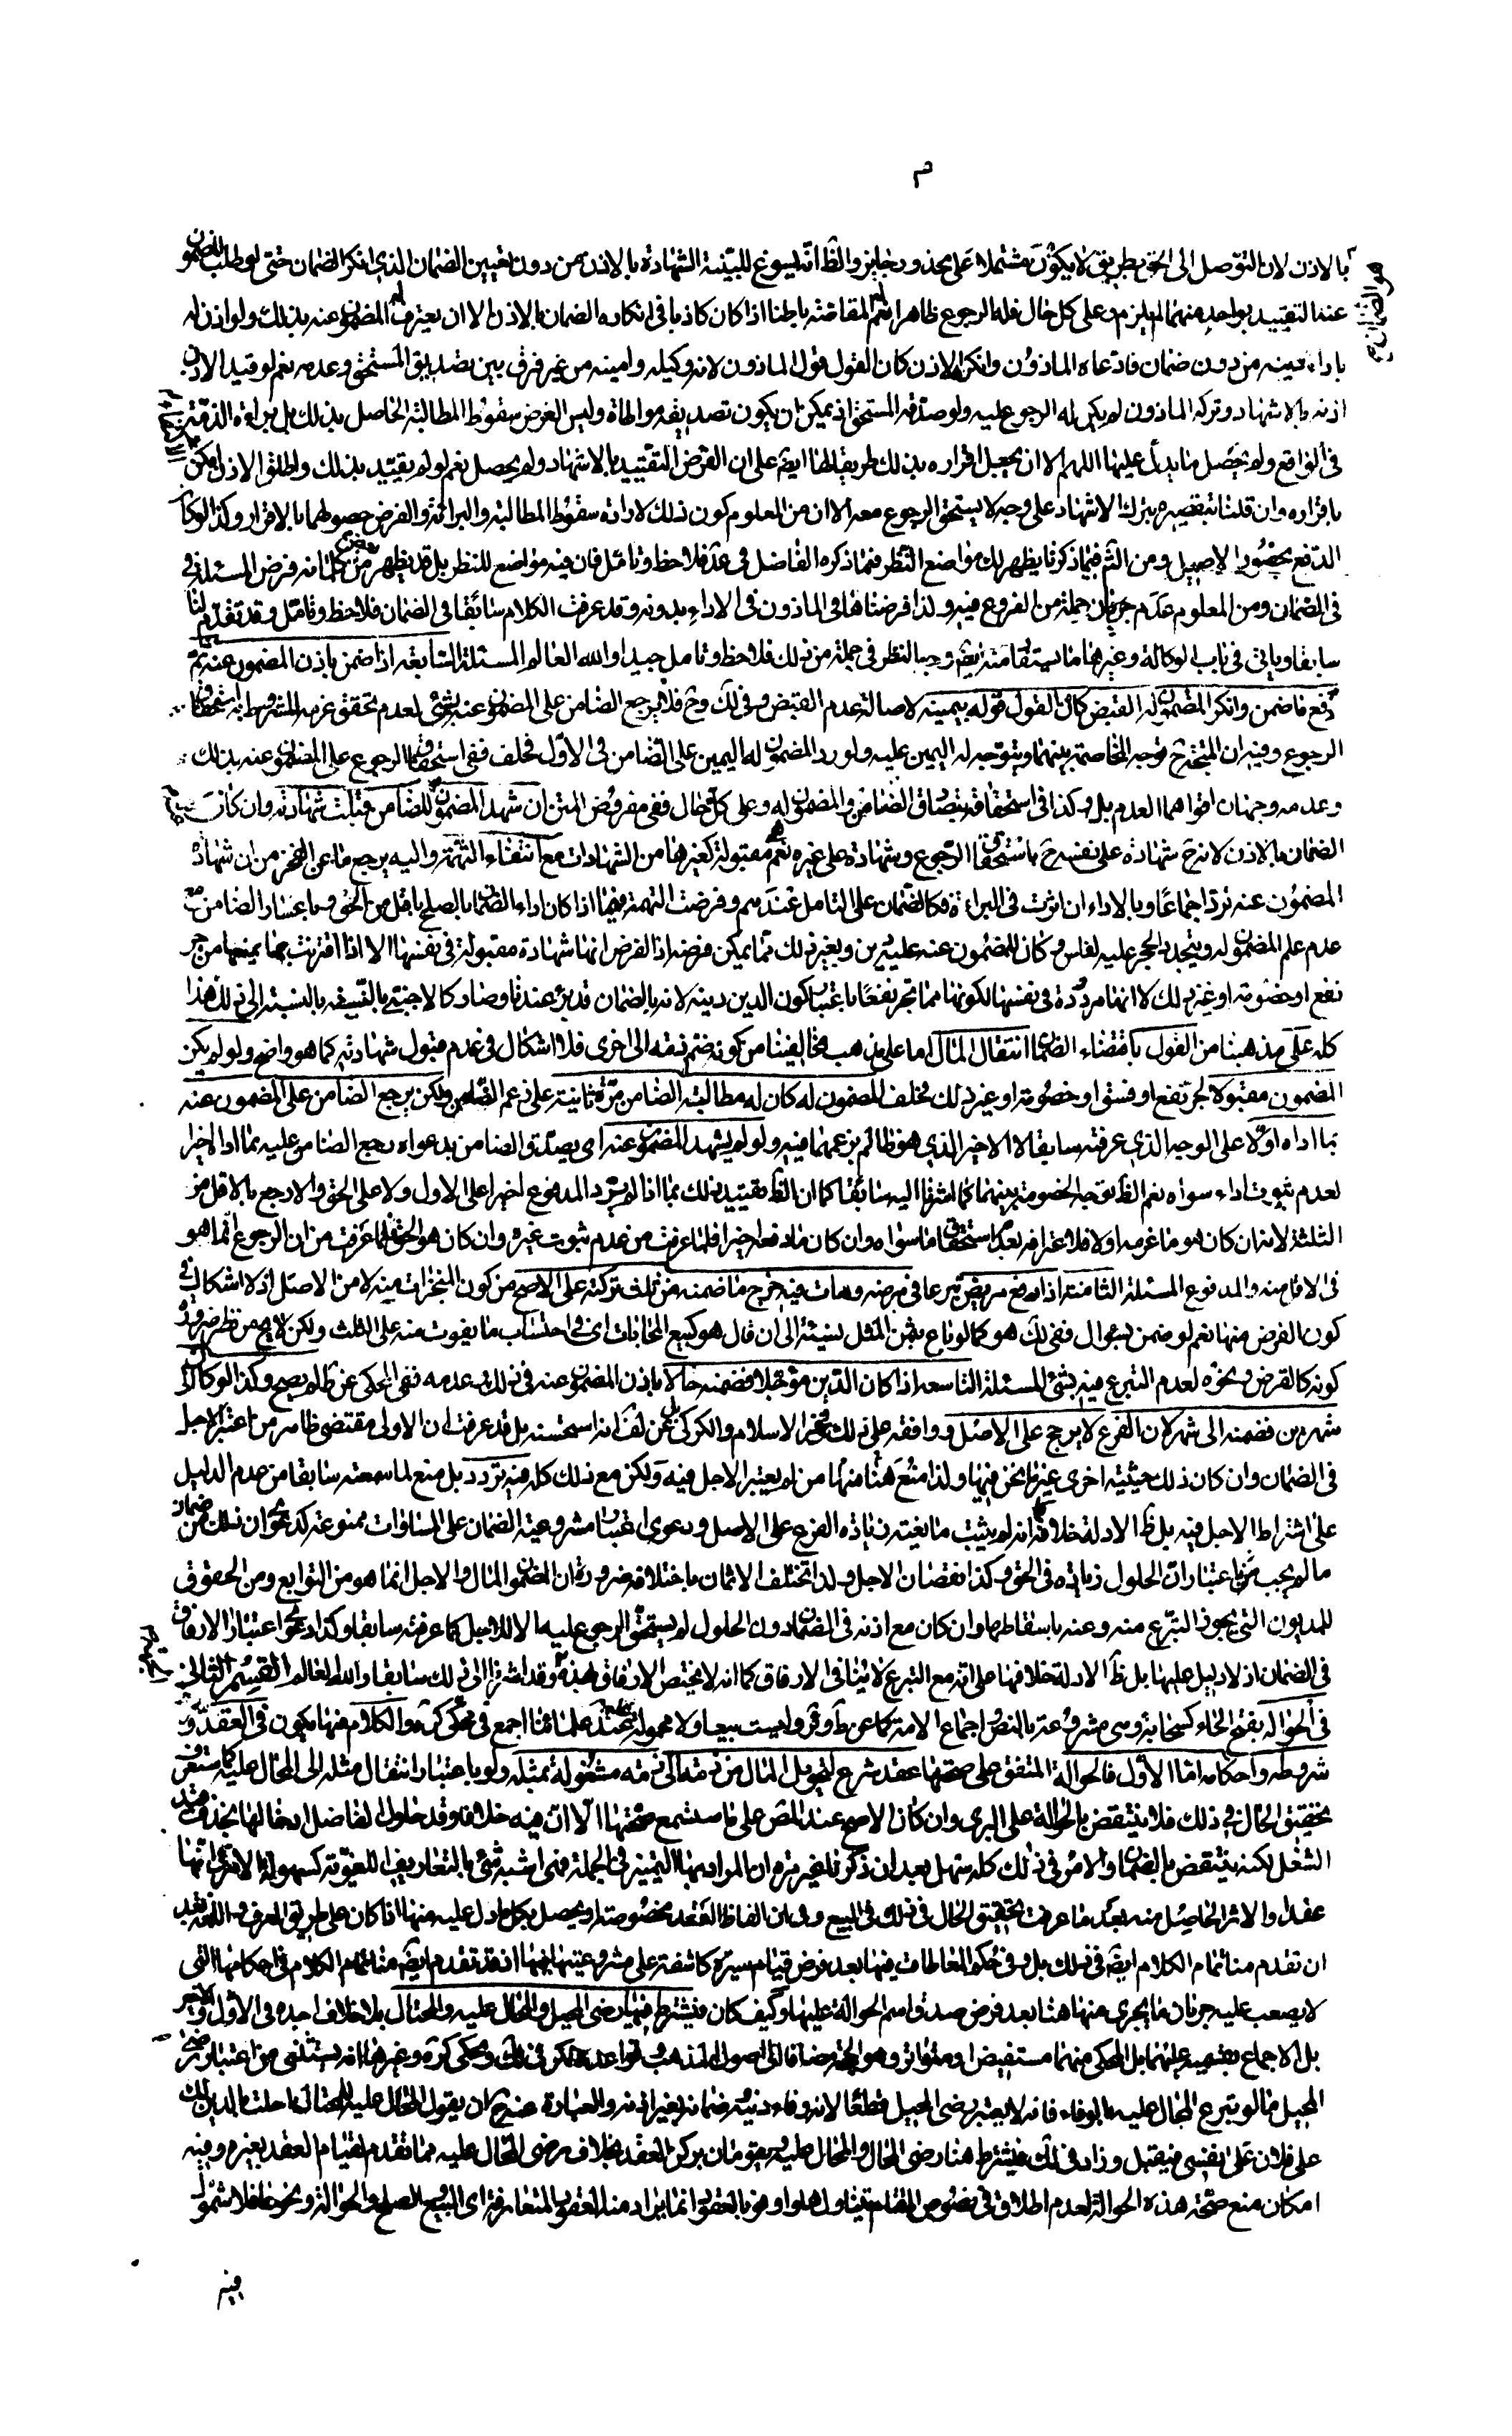 بالاذن لان التوصل الى الحق بطريق لا يكون مشتملا على محذور جايز والظ انه يسوغ للبينة الشهادة بالاذن من دون تعيين الضمان الذي انكر الضمان حتى لو طلب المضمون
عنه التقييد بواحد منهما لم يلزم وعلى كل حال فله الرجوع ظاهرا نعم له المقاصة باطنا اذا كان كاذبا في انكاره الضمان بالاذن الا ان يعترف له المضمون عنه بذلك ولو اذن له
باداء دينه من دون ضمان فادعاه الماذون وانكر الاذن كان القول قول الماذون لانه وكيله وامينه من غير فرق بين تصديق المستحق وعدمه نعم لو قيد الاذن
اذنه بالاشهاد وتركه الماذون لم يكن له الرجوع عليه ولو صدقه المستحق اذ يمكن ان يكون تصديقه مواطاة وليس الغرض سقوط المطالبة الحاصل بذلك بل براءة الذمة
في الواقع ولم يحصل ما يدل عليها اللهم الا ان يجعل اقراره بذلك طريقا لها ايضا على ان الفرض التقييد بالاشهاد ولم يحصل نعم لو لم يقيد بذلك واطلق الاذن امكن
باقراره وان قلنا بتقصيره بترك الاشهاد على وجه لا يستحق الرجوع معه الا ان من المعلوم كون ذلك لارادة سقوط المطالبة والبراءة والفرض حصولهما بالاقرار وكذا لو كان
الدفع بحضور الاصيل ومن التامل فيما ذكرنا يظهر لك مواضع النظر فيما ذكره الفاضل في عد فلاحظ وتامل فان فيه مواضع للنظر بل قد يظهر من بعض كلماته فرض المسئلة في
في الضمان ومن المعلوم عدم جريان جملة من الفروع فيه ولذا فرضناها في الماذون في الاداء بدونه وقد عرفت الكلام سابقا في الضمان فلاحظ وتامل وقد تقدم لنا
سابقا وياتي في باب الوكالة وغيرها ما يستفاد منه ايضا وجه النظر في جملة من ذلك فلاحظ وتامل جيدا والله العالم المسئلة السابعة اذا ضمن باذن المضمون عنه ثم
دفع ما ضمن وانكر المضمون له القبض كان القول قوله بيمينه لاصالة عدم القبض وفي لك وح فلا يرجع الضامن على المضمون عنه بشئ لعدم تحقق غرمه المشروط به استحقاق
الرجوع وفيه ان المتجه ح توجه المخاصمة بينهما ويتوجه له اليمين عليه ولو رد المضمون له اليمين على الضامن في الاول فحلف ففي استحقاقه الرجوع على المضمون عنه بذلك
وعدمه وجهان اقواهما العدم بل وكذا في استحقاقه بتصادق الضامن والمضمون له وعلى كل حال ففي مفروض المتن ان شهد المضمون عنه للضامن قبلت شهادته وان كان
الضمان بالاذن لانه ح شهادة على نفسه باستحقاق الرجوع وشهادة على غيره نعم مقبولة كغيرها من الشهادات مع انتفاء التهمة واليه يرجع ما عن الفخر من ان شهادة
المضمون عنه ترد اجماعا وبالاداء ان اثرت في البراءة فكالضمان على التامل عندهم وفرضت التهمة فيما اذا كان اداء الضامن بالصلح باقل من الحق وباعسار الضامن مع
عدم علم المضمون له وبتجدد الحجر عليه لفلس وكان للمضمون عنه عليه دين وبغير ذلك مما يمكن فرضه اذ الفرض انها شهادة مقبولة في نفسها الا اذا اقترنت بها يمنعها من جر
نفع او خصومة او غير ذلك لا انها مردودة في نفسها لكونها مما تجر نفعا باعتبار كون الدين دينه لانه بالضمان قد برئ عندنا وصار كالاجنبي بالنسبة الى ذلك هذا
كله على مذهبنا من القول باقتضاء الضمان انتقال المال اما على مذهب مخالفينا من كونه ضم ذمة الى اخرى فلا اشكال في عدم قبول شهادته كما هو واضح ولو لم يكن
المضمون مقبولا لجر نفع او فسق او خصومة او غير ذلك فحلف المضمون له كان له مطالبة الضامن مرة ثانية على زعم الضامن ولكن يرجع الضامن على المضمون عنه
بما اداه اولا على الوجه الذي عرفته سابقا لا الاخير الذي هو ظالم بزعمهما فيه ولو لم يشهد المضمون عنه اي يصدق الضامن بدعواه رجع الضامن عليه بما اداه اخيرا
لعدم ثبوت اداء سواه نعم الظ توجه الخصومة بينهما كما اشرنا اليه سابقا كما ان الظ تقييد ذلك بما اذا لم يزد المدفوع اخيرا على الاول ولا على الحق والا رجع بالاقل من
الثلثة لانه ان كان هو ما غرمه اولا فلاعترافه بعدم استحقاق ما سواه وان كان ما دفعه اخيرا فلما عرفت من عدم ثبوت غيره وان كان هو الحق فلما عرفت من ان الرجوع انما هو
في الاقل منه والمدفوع المسئلة الثامنة اذا ضمن مريض تبرعا في مرضه ومات فيه خرج ما ضمنه من ثلث تركته على الاصح من كون المنجزات منه لا من الاصل اذ لا اشكال في
كون الفرض منها نعم لو ضمن بسؤال ففي لك هو كما لو باع بثمن المثل نسيئة الى ان قال هو كبيع المحابات اي في احتساب ما يفوت منه على الثلث ولكن لا يخ من نظر ضرورة
كونه كالقرض ونحوه لعدم التبرع فيه بشئ المسئلة التاسعة اذا كان الدين مؤجلا فضمنه حالا باذن المضمون عنه في ذلك وعدمه ففي المحكي عن ط لم يصح وكذا لو كان الى
شهرين فضمنه الى شهر لان الفرع لا يرجح على الاصل ووافقه على ذلك فخر الاسلام والكركي بل عن لف انه استحسنه بل قد عرفت ان الاولى مقتضى ظاهر من اعتبر الاجل
في الضمان وان كان ذلك حيثية اخرى غير ما نحن فيها ولذا منع هنا منها من لم يعتبر الاجل فيه ولكن مع ذلك كله فيه تردد بل منع لما سمعته سابقا من عدم الدليل
على اشتراط الاجل فيه بل ظ الادلة خلافه كما انه لم يثبت مانعية زيادة الفرع على الاصل ودعوى اعتبار مشروعية الضمان على المساواة ممنوعة كدعوى ان ذلك من ضمان
ما لم يجب باعتبار ان الحلول زيادة في الحق وكذا نقصان الاجل ولذا تختلف الاثمان باختلافه ضرورة ان المضمون المال والاجل انما هو من التوابع ومن الحقوق
للمديون التي يجوز التبرع منه وعنه باسقاطها وان كان مع اذنه في الضمان دون الحلول لم يستحق الرجوع عليه الا للاجل كما عرفته سابقا وكذا دعوى اعتبار الارفاق
في الضمان اذ لا دليل عليها بل ظ الادلة خلافها على انه مع التبرع لا ينافي الارفاق كما انه لا يختص الارفاق بهذه وقد اشرنا الى ذلك سابقا والله العالم القسم الثاني
في الحوالة بفتح الحاء كسحابة وهي مشروعة بالنص واجماع الامة كما عن ط وئر وليست بيعا ولا محمولة عليه عند علمائنا اجمع في محكي كره والكلام فيها يكون في العقد و
شروطه واحكامه اما الاول فالحوالة المتفق على صحتها عقد شرع لتحويل المال من ذمة الى ذمة مشغولة بمثله ولو باعتبار انتقال مثله الى المحال عليه كما ستعرف
تحقيق الحال في ذلك فلا ينتقض بالحوالة على البرئ وان كان الاصح عند المص على ما ستسمع صحتها الا ان فيه خلافا وقد حاول الفاضل ادخالها بحذف قيد
الشغل لكنه ينتقض بالضمان والامر في ذلك كله سهل بعد ان ذكرنا غير مرة ان المراد بها التميز في الجملة فهي اشبه شئ بالتعاريف اللغوية كسهولة الامر في انها
عقد او الاثر الحاصل منه بعد ما عرفت تحقيق الحال في ذلك في البيع وفي ان الفاظ العقد مخصوصة او يحصل بكل ما دل عليه منها اذا كان على طريق العرف واللغة بعد
ان تقدم منا تمام الكلام ايضا في ذلك بل وفي حكم المعاطاة فيها بعد فرض قيام سيرة كاشفة على مشروعيتها فيها اذ قد تقدم ايضا منا تمام الكلام في احكامها التي
لا يصعب عليه جريان ما يجري منها هنا بعد فرض صدق اسم الحوالة عليها وكيف كان فيشترط فيها رضى المحيل والمحال عليه والمحتال بلا خلاف اجده في الاول والاخير
بل الاجماع بقسميه عليهما بل المحكي منهما مستفيض او متواتر وهو الحجة مضافا الى اصول المذهب وقواعده لكن في لك ومحكي كره وغيرها انه يستثنى من اعتبار رضى
المحيل ما لو تبرع المحال عليه بالوفاء فانه لا يعتبر رضى المحيل قطعا لانه وفاء دينه وضمانه بغير اذنه والعبارة عنه ح ان يقول المحال عليه للمحتال احلتك بالدين الذي لك
على فلان على نفسي فيقبل وزاد في لك فيشترط هنا رضى المحال والمحال عليه ويقومان بركن العقد بخلاف رضى المحال عليه مما تقدم لقيام العقد بغيره وفيه
امكان منع صحة هذه الحوالة لعدم اطلاق في نصوص المقام يتناولها واوفوا بالعقود انما يراد منه العقود المتعارفة اي البيع والصلح والحوالة ونحوها فلا شمول
فيه